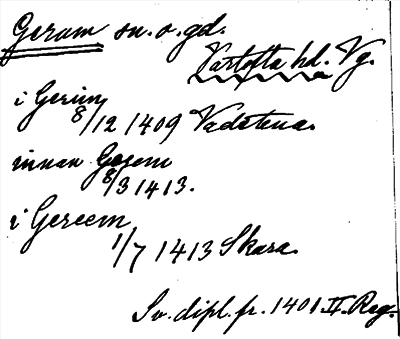 Gerum sn. o. gd.
Vartofta hd. Vg.
i Gerum
8/12 1409 Vadstena.
innan Gerem
8/3 1413.
i Gereem
1/7 1413 Skara.
Sv. dipl. fr. 1401 II. Reg.